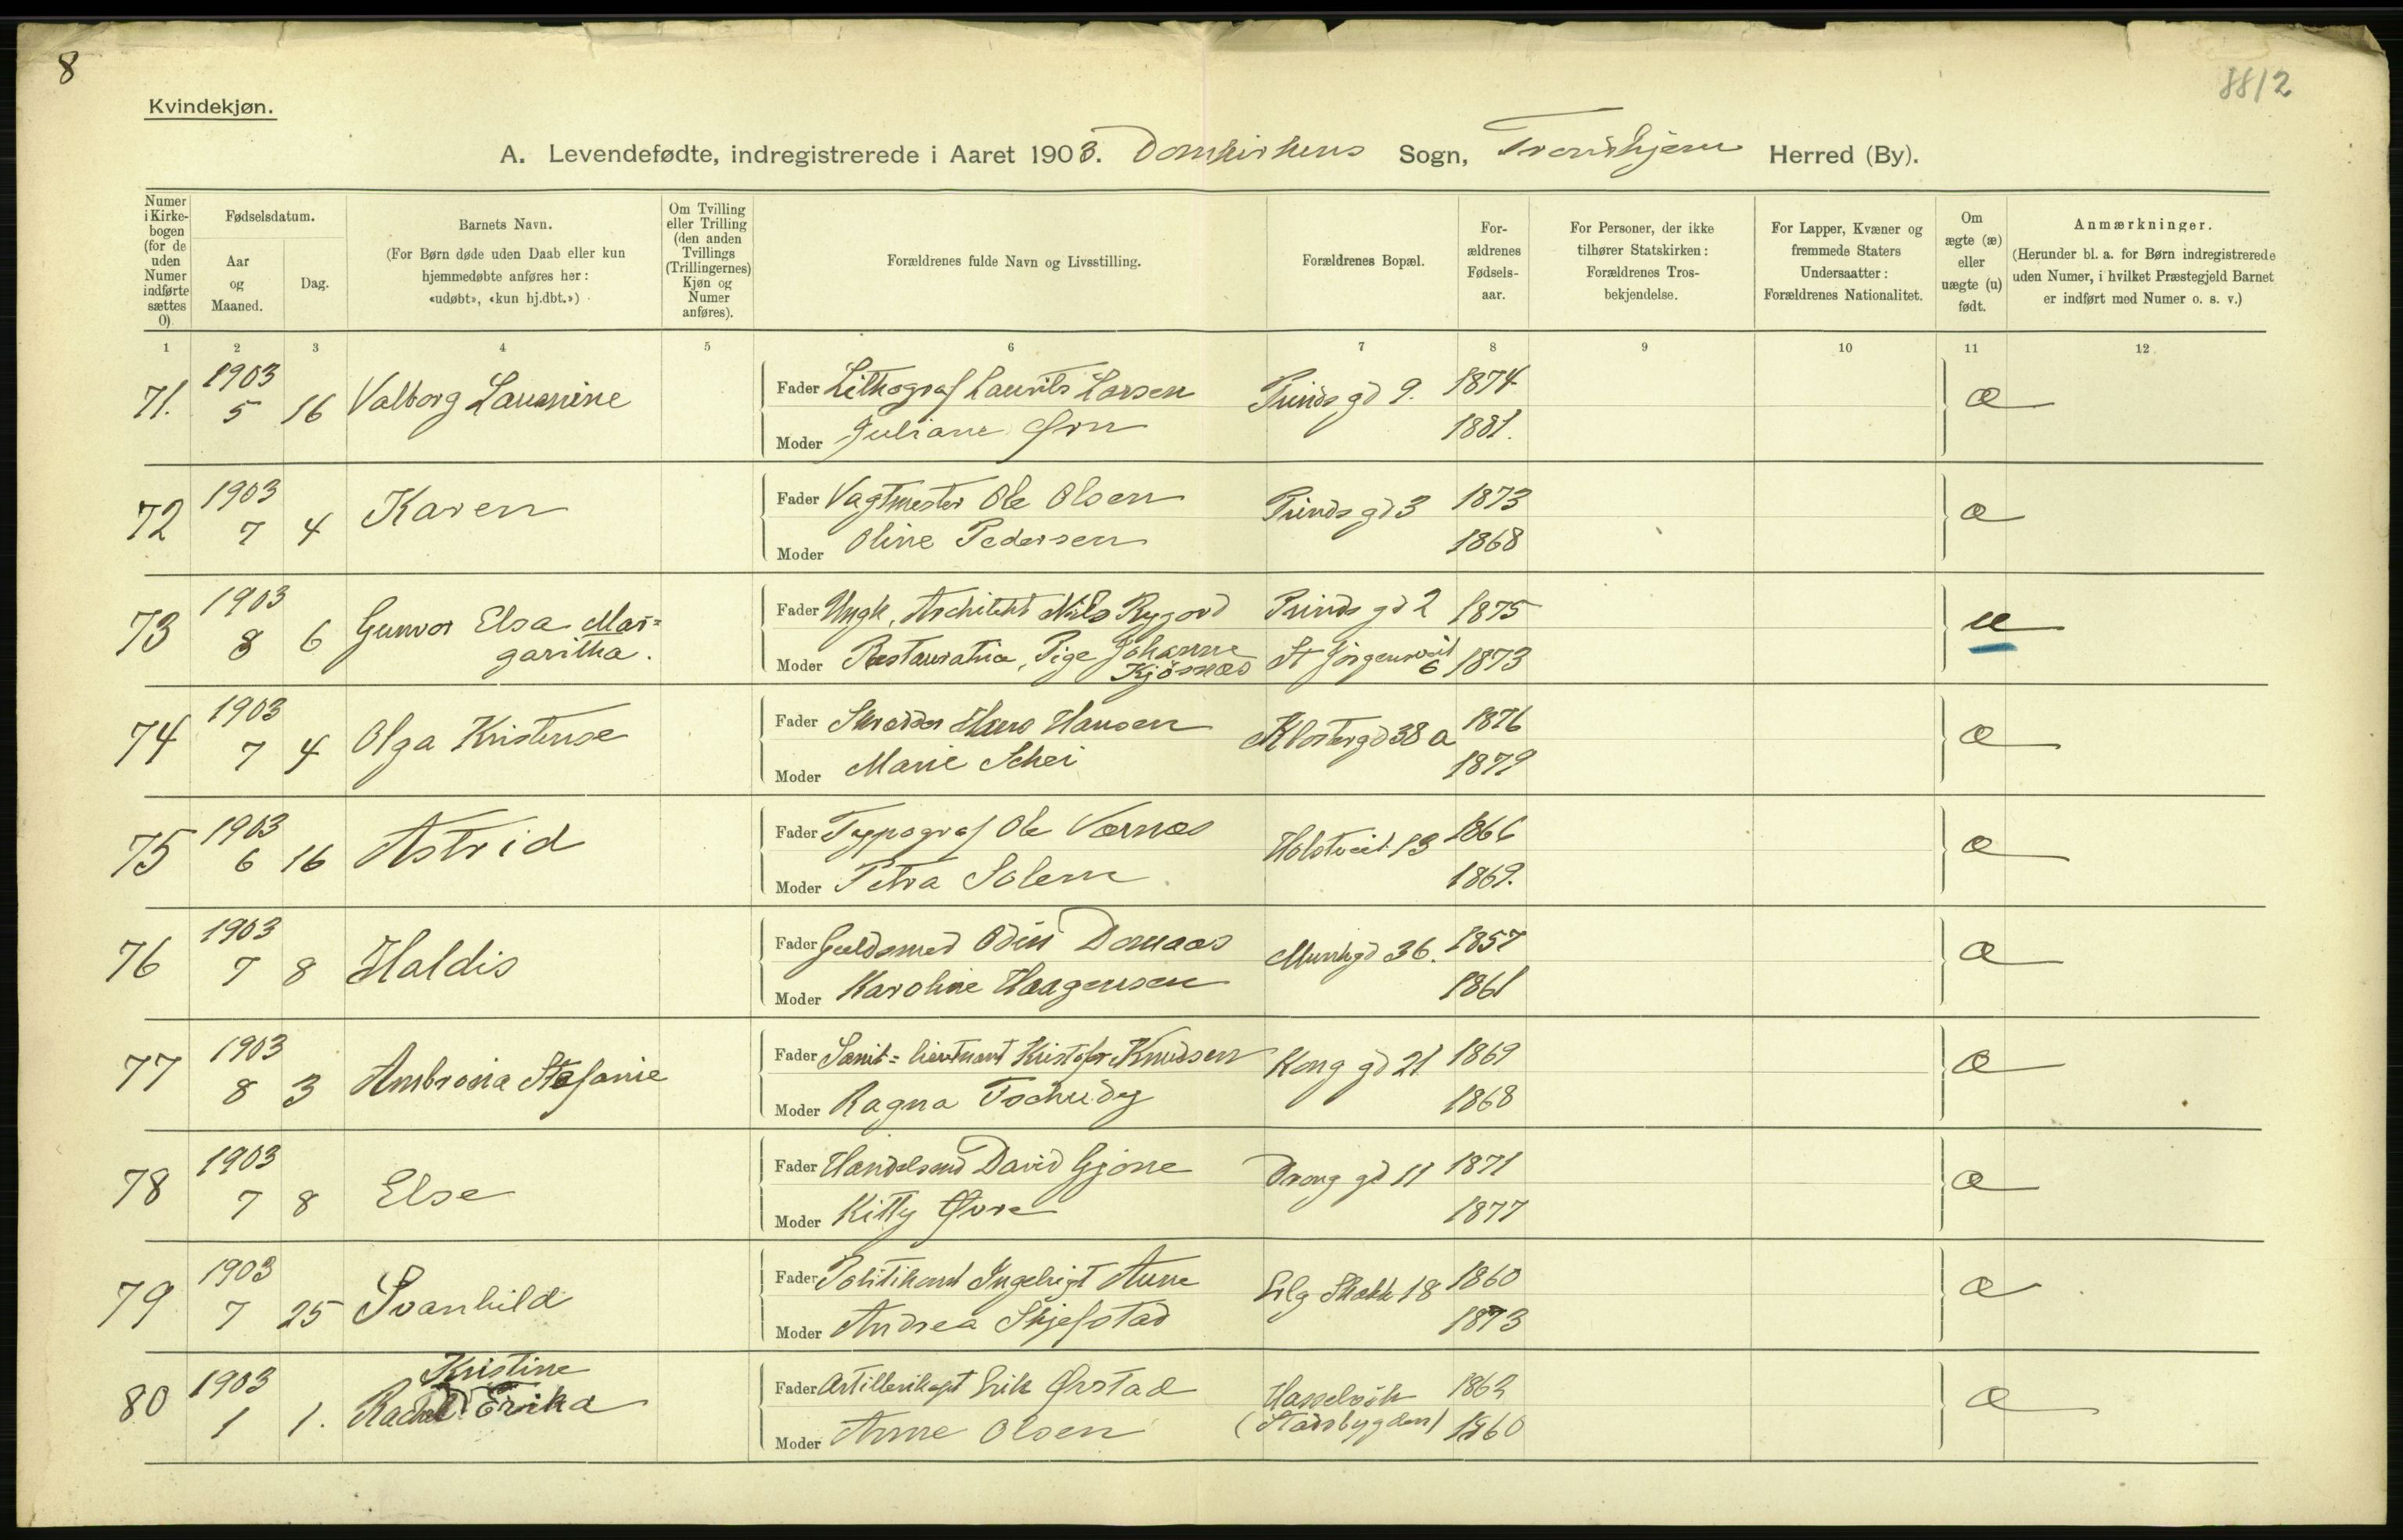 8
8812
Kvindekjøn.
A. Levendefødte, indregistrerede i Aaret 1903. Domkirkens Sogn, Trondhjem Herred (By).
Numer i Kirkebogen (for de uden Numer indførte sættes 0)
Fødselsdatum.
Aar og Maaned.
Dag.
Barnets Navn.
(For Børn døde uden Daab eller kun hjemmedøbte anføres her: «udøbt», «kun hj.dbt.»)
Om Tvilling eller Trilling (den anden Tvillings (Trillingernes) Kjøn og Numer anføres).
Forældrenes fulde Navn og Livsstilling.
Forældrenes Bopæl.
Forældrenes Fødselsaar.
For Personer, der ikke tilhører Statskirken: Forældrenes Trosbekjendelse.
For Lapper, Kvæner og fremmede Staters Undersaatter: Forældrenes Nationalitet.
Om ægte (æ) eller uægte (u) født.
Anmærkninger.
(Herunder bl. a. for Børn indregistrerede uden Numer, i hvilket Præstegjeld Barnet er indført med Numer o. s. v.)
1 2 3 4 5 6 7 8 9 10 11 12
71. 1903 5 16 Valborg Laurnine Fader Lithograf Laurits Larsen Prinds gd 9. 1874 æ
Moder Juliane Ørn 1881.
72 1903 7 4 Karen Fader Vagtmester Ole Olsen Prinds gd 3 1873 æ
Moder Oline Pedersen 1868
73 1903 8 6 Gunvor Elsa Mar=
garitha. Fader Ungk. Architekt Nils Rygord Prinds gd 2 1875 u
Moder Restauratrice, Pige Johanne Kjösnæs St Jørgensveit 6 1873
74 1903 7 4 Olga Kristense Fader Skrædder Hans Hansen Klostergd 38 a 1876 æ
Moder Marie Schei 1879
75 1903 6 16 Astrid Fader Typograf Ole Værnæs Holstveit 13 1866 æ
Moder Petra Solem 1869.
76 1903 7 8 Haldis Fader Guldsmed Odin Domaas Munkgd 36. 1857 æ
Moder Karoline Haagensen 1861
77 1903 8 3 Ambrosia Stefanie Fader Sanit= lieutnant Kristofer Knudsen Kong gd 21 1869 æ
Moder Ragna Tschudy 1868
78 1903 7 8 Else Fader Handelsmd David Gjone Drong gd 11 1871 æ
Moder Kitty Øvre 1877
79 1903 7 25 Svanhild Fader Politikonst Ingebrigt Aune 18 1860 æ
Moder Andrea Skjefstad 1873
80 1903 1 1. Kristine
Rachel Erika Fader Artillerikapt Erik Ørstad Hasselvik 1863 æ
Moder Anne Olsen (Stadsbygden) 1860